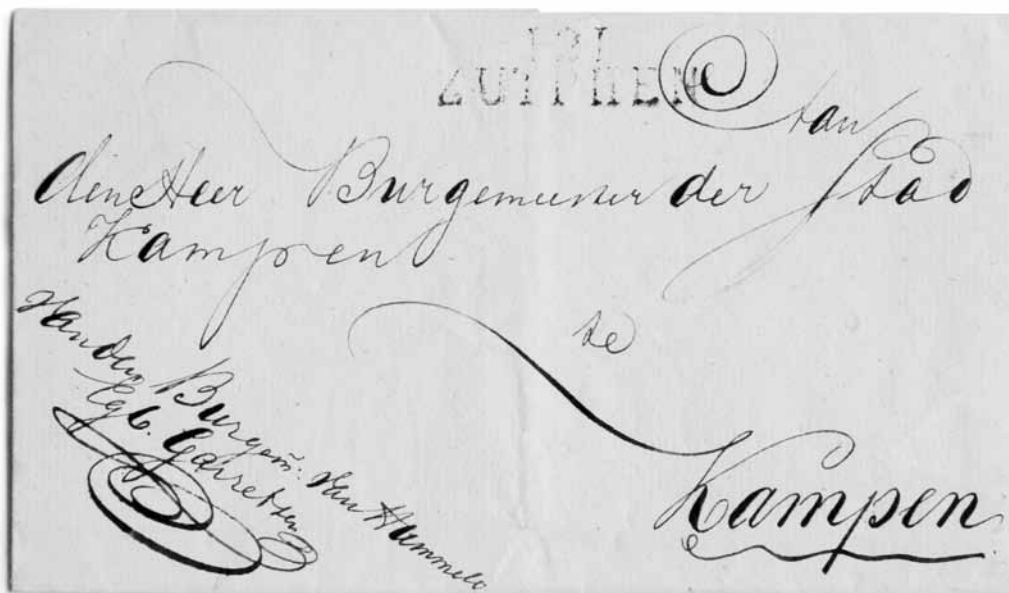 ZUTPHEN
Aan
den Heer Burgemeester der Stad
Kampen
te
Kampen
Van den Burgem: van Hummelo